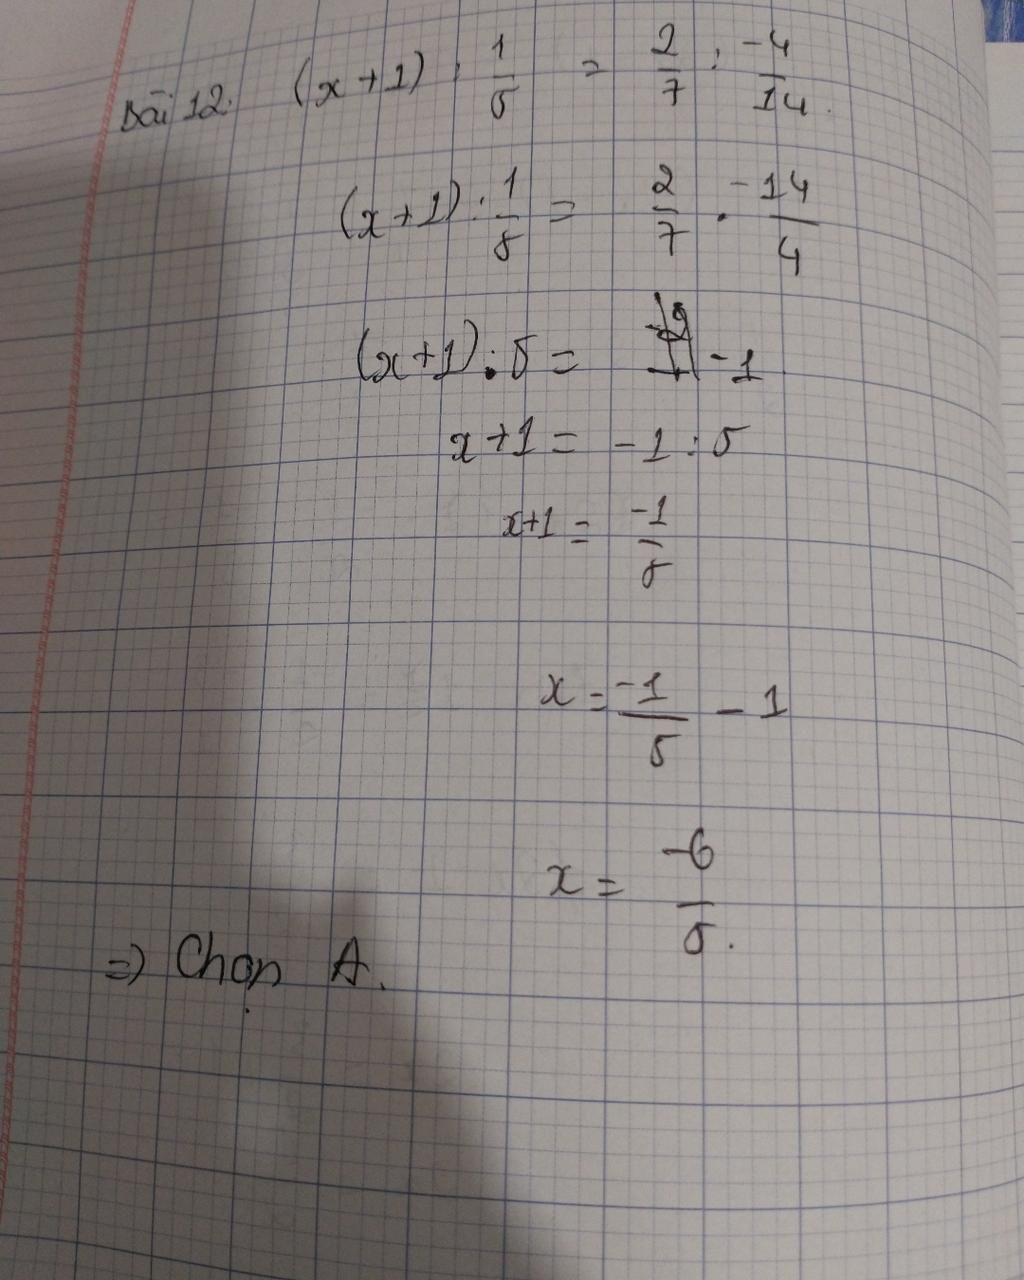 Bài 12. (x+1) : 1/5 = 2/7 : -4/14.
(x+1) : 1/5 = 2/7 . -14/4
(x+1) . 5 = -1
x+1 = -1 : 5
x+1 = -1/5
x = -1/5 - 1
x = -6/5.
=> Chọn A.